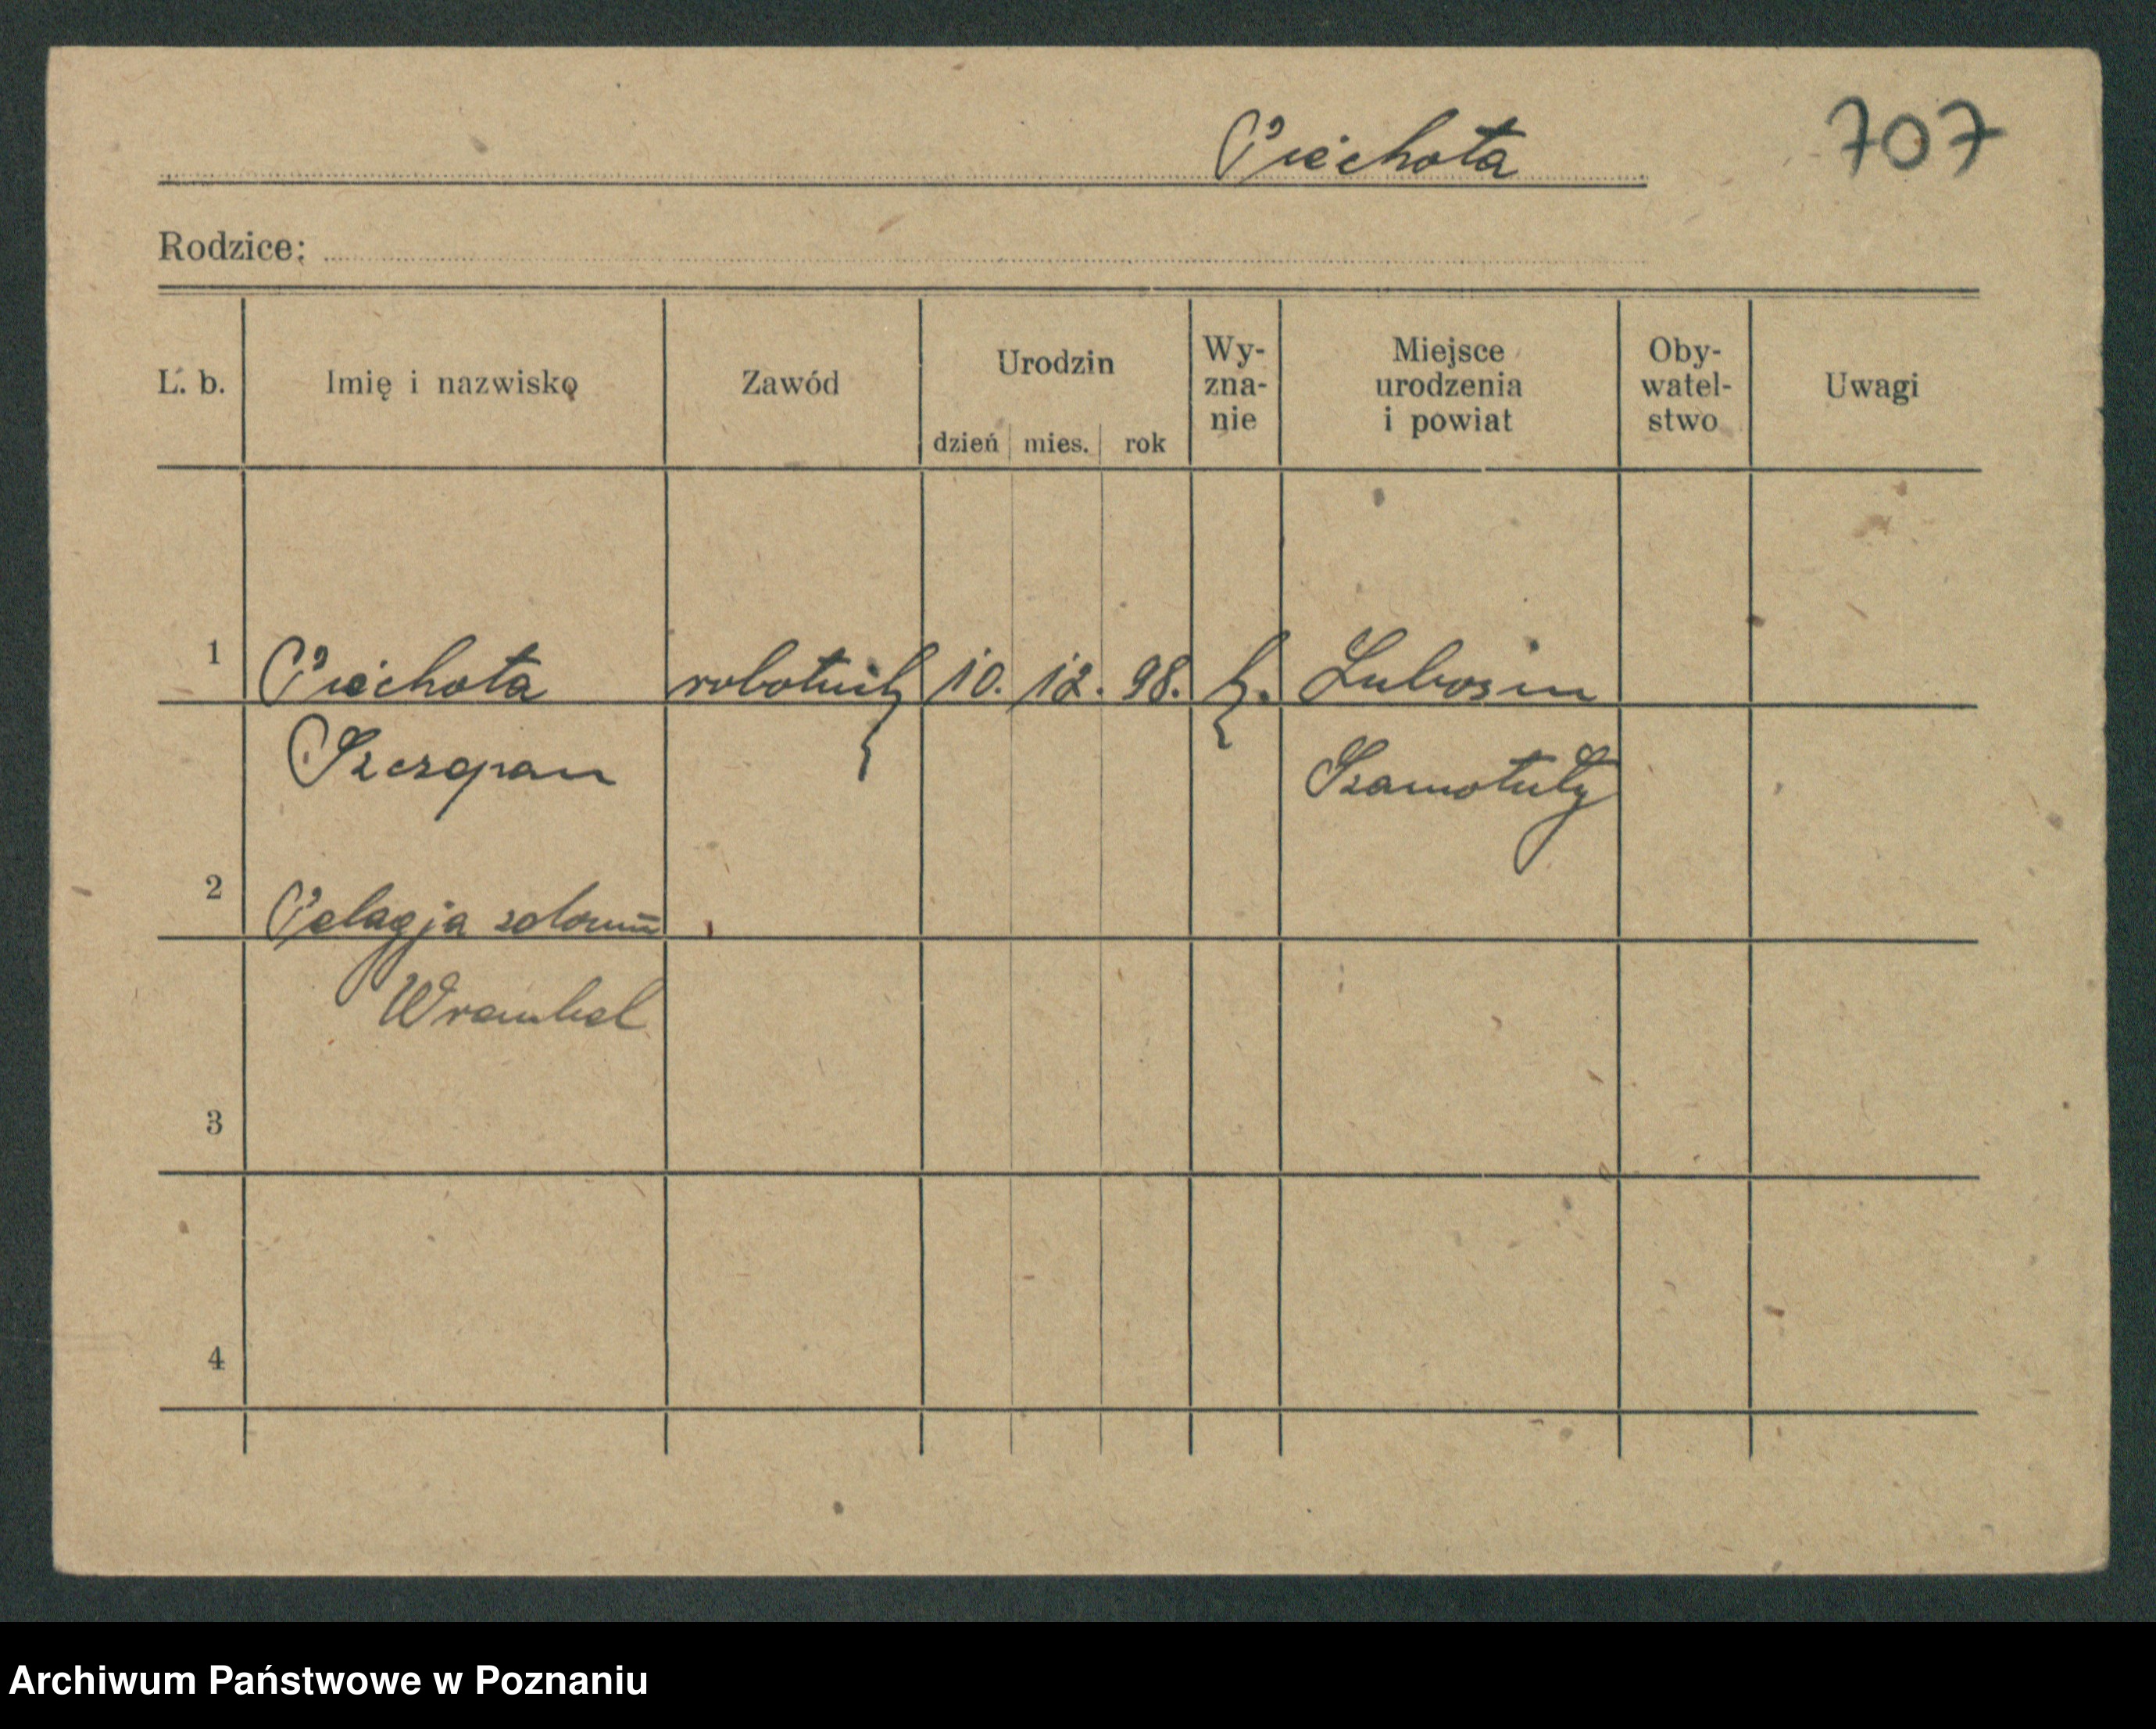 Piechota 707
Rodzice:
L. b. Imię i nazwisko Zawód Urodzin dzień mies. rok Wy-zna-nie Miejsce urodzenia i powiat Oby-watel-stwo Uwagi
1 Piechota robotnik 10. 12. 98. k. Lubosin
Szczepan Szamotuły
2 Pelagja
Wrembel
3
4
Archiwum Państwowe w Poznaniu